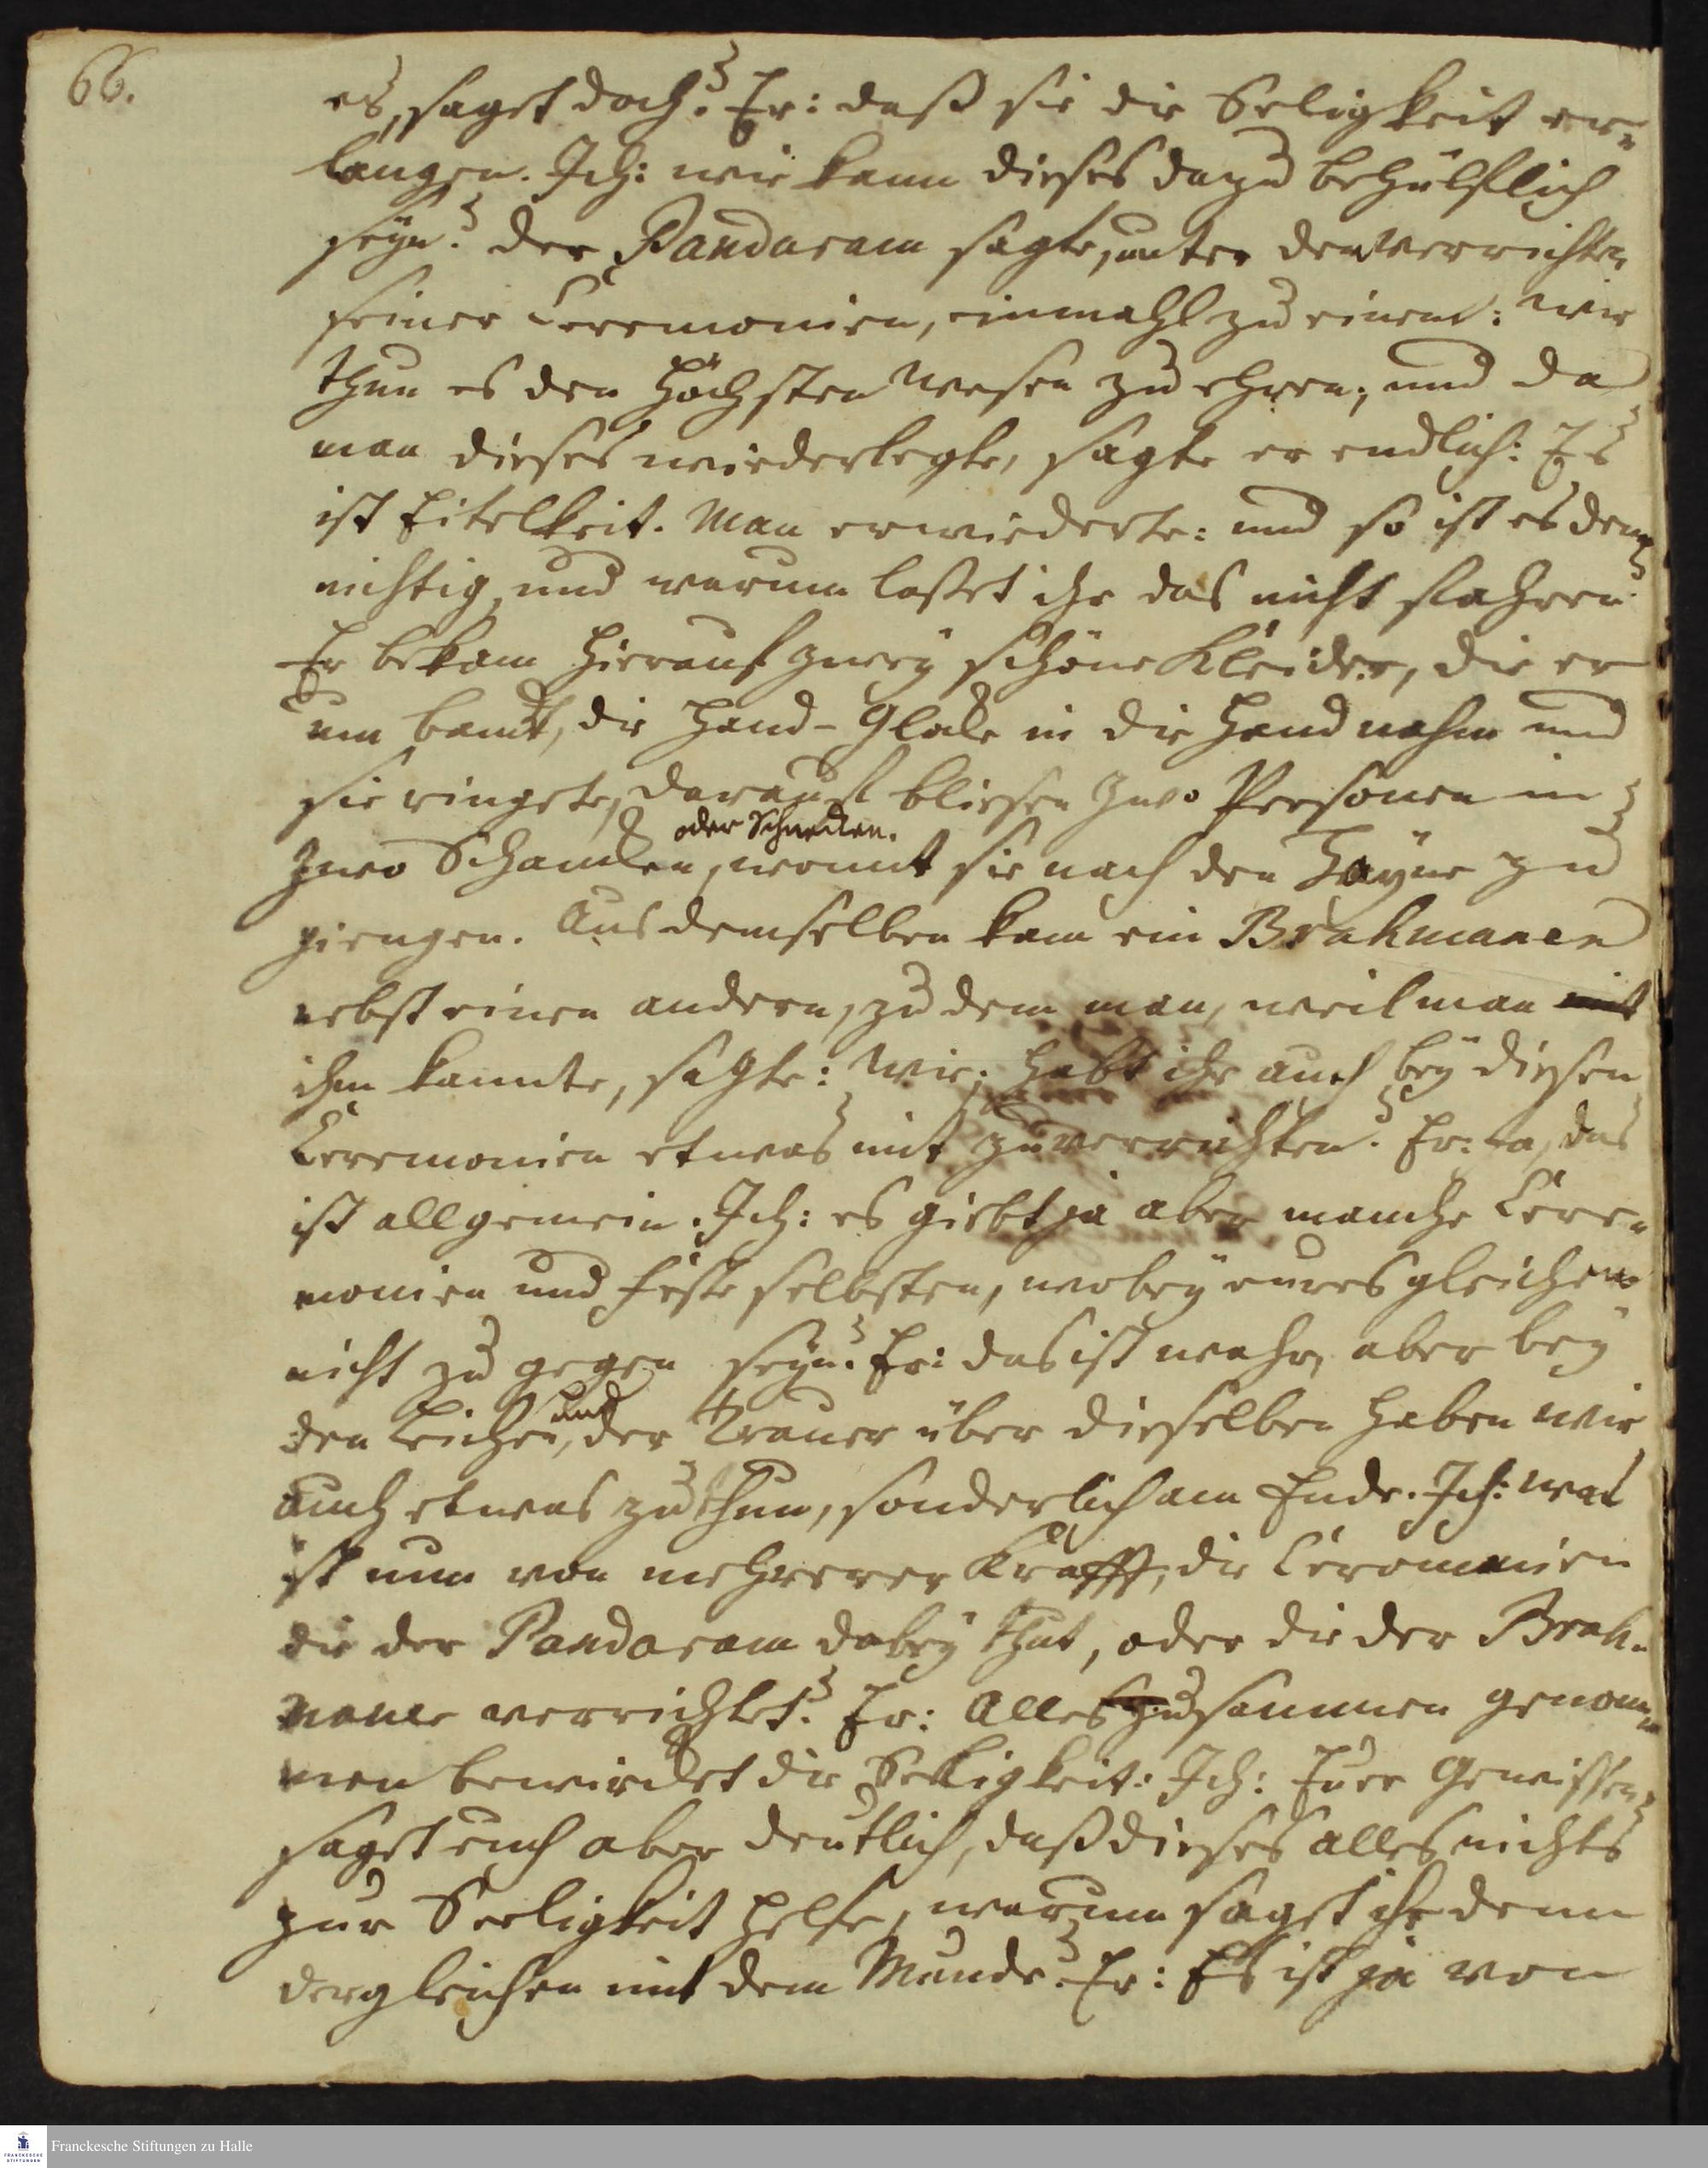 66.
es, saget doch? Er: daß sie die Seligkeit er-
langen. Ich: wie kann dieses dazu behülflich
seyn? der Pandaram sagte, unter den verrichten
seiner Ceremonien, einmahl zu einem: wir
thun es den höchsten Wesen zu ehren; und da
man dieses wiederlegte, sagte er endlich: Es
ist Eitelkeit. Man erwiederte: und so ist es denn
nichtig, und warum lasset ihr das nicht fahren?
Er bekam hierauf zweÿ schöne Kleider, die er
um bandt, die Hand-Glocke in die Hand nahm und
sie ringete, darauf bliesen zwo Personen in
oder Schnecken.
zwo Schancken, womit sie nach den Hayne zu
giengen. Aus demselben kam ein Brahmanen
nebst einen andern, zu dem man, weil man mit
ihm kannte, sagte: Wie; habt ihr auch beÿ diesen
Ceremonien etwas mit zu verrichten? Er: Ja, das
ist allgemein. Ich: es giebt ja aber manche Cere-
monien und Feste selbsten, wobeÿ eures gleichen
nicht zu gegen seyn? Er: das ist wahr, aber beÿ
den Leichen, und der Trauer über dieselben haben wir
auch etwas zu thun, sonderlich am Ende. Ich: was
ist nun von mehrerer Krafft, die Ceromonien
die der Pandaram dabeÿ thut, oder die der Brah-
mane verrichtet? Er: Alles zusammen genom-
men bewircket die Seeligkeit. Ich: Euer Gewissen
saget euch aber deutlich, daß dieses alles nichts
zur Seeligkeit helfe, warum saget ihr denn
dergleichen mit dem Munde? Er: Es ist ja von
Franckesche Stiftungen zu Halle
FRANCKESCHE
STIFTUNGEN